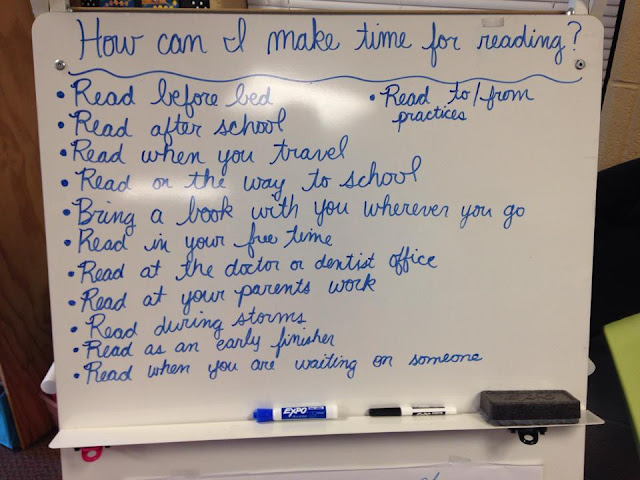 How can I make time for reading?
• Read before bed
• Read after school
• Read when you travel
• Read on the way to school
• Bring a book with you wherever you go
• Read in your free time
• Read at the doctor or dentist office
• Read at your parents work
• Read during storms
• Read as an early finisher
• Read when you are waiting on someone
• Read to/from
practices
EXPO